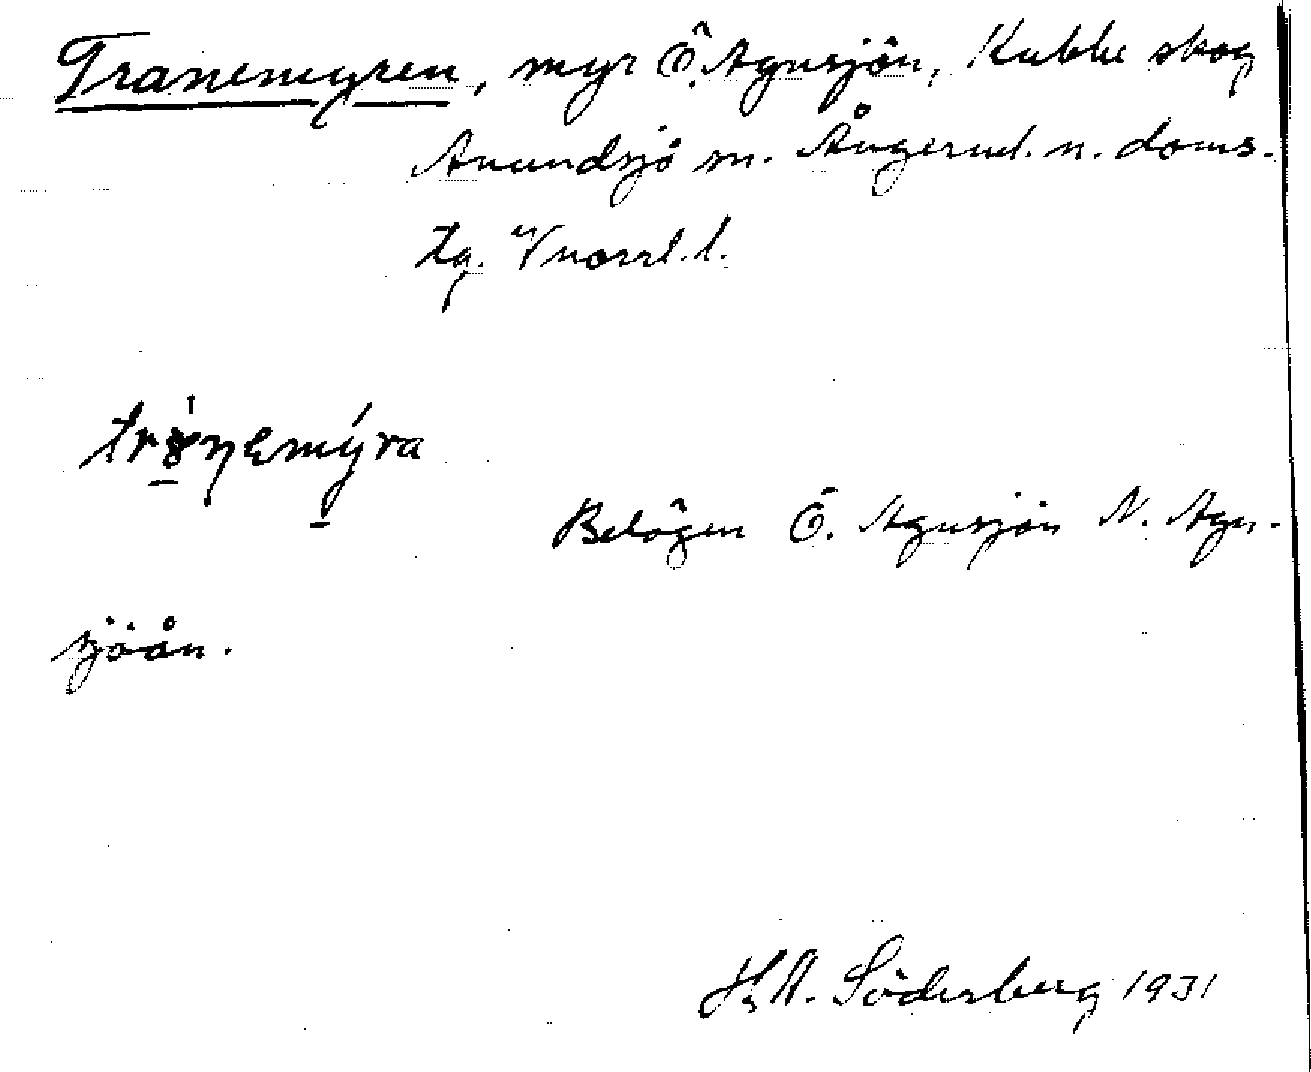 Tranemyren, myr Ö. Agnsjön, Kubbe skog
Anundsjö sn. Ångerml. n. doms.
tg. Vnorrl. l.
Belägen Ö. Agnsjön N. Agn-
sjöån.
H. A. Söderberg 1931